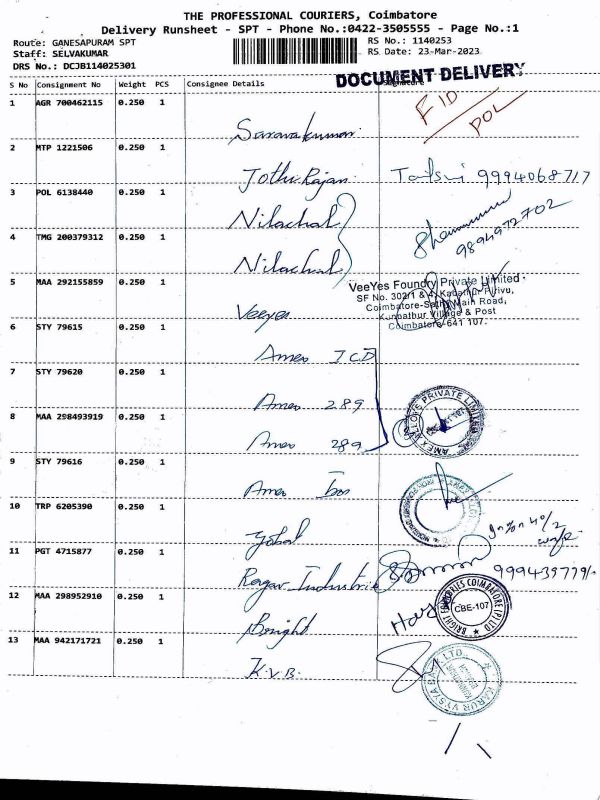 THE PROFESSIONAL COURIERS, Coimbatore
Delivery Runsheet - SPT - Phone No.:0422-3505555 - Page No.:1
Route: GANESAPURAM SPT
RS No.: 1140253
Staff: SELVAKUMAR
RS Date: 23-Mar-2023
DRS No.: DCJB114025301
DOCUMENT DELIVERY
S No Consignment No Weight PCS Consignee Details
1 AGR 700462115 0.250 1
FID
POL
Saravanakumar
2 MTP 1221506 0.250 1
Jothi Rajan 9994068717
3 POL 6138440 0.250 1
Nilachal
9894972702
4 TMG 200379312 0.250 1
Nilachal
5 MAA 292155859 0.250 1
Veeyes
VeeYes Foundry Private Limited
SF No. 302/1 & 4, Kadathur Pirivu,
Coimbatore-Sathy Main Road,
Kunnathur Village & Post
Coimbatore-641 107.
6 STY 79615 0.250 1
Amex
7 STY 79620 0.250 1
Amex 289
8 MAA 298493919 0.250 1
Amex 289
AMEX ALLOYS PRIVATE LIMITED
9 STY 79616 0.250 1
Amex
10 TRP 6205390 0.250 1
11 PGT 4715877 0.250 1
Ragav Industries
12 MAA 298952910 0.250 1
Bright
CBE-107
13 MAA 942171721 0.250 1
K.V.B.
KARUR VYSYA BANK LTD.